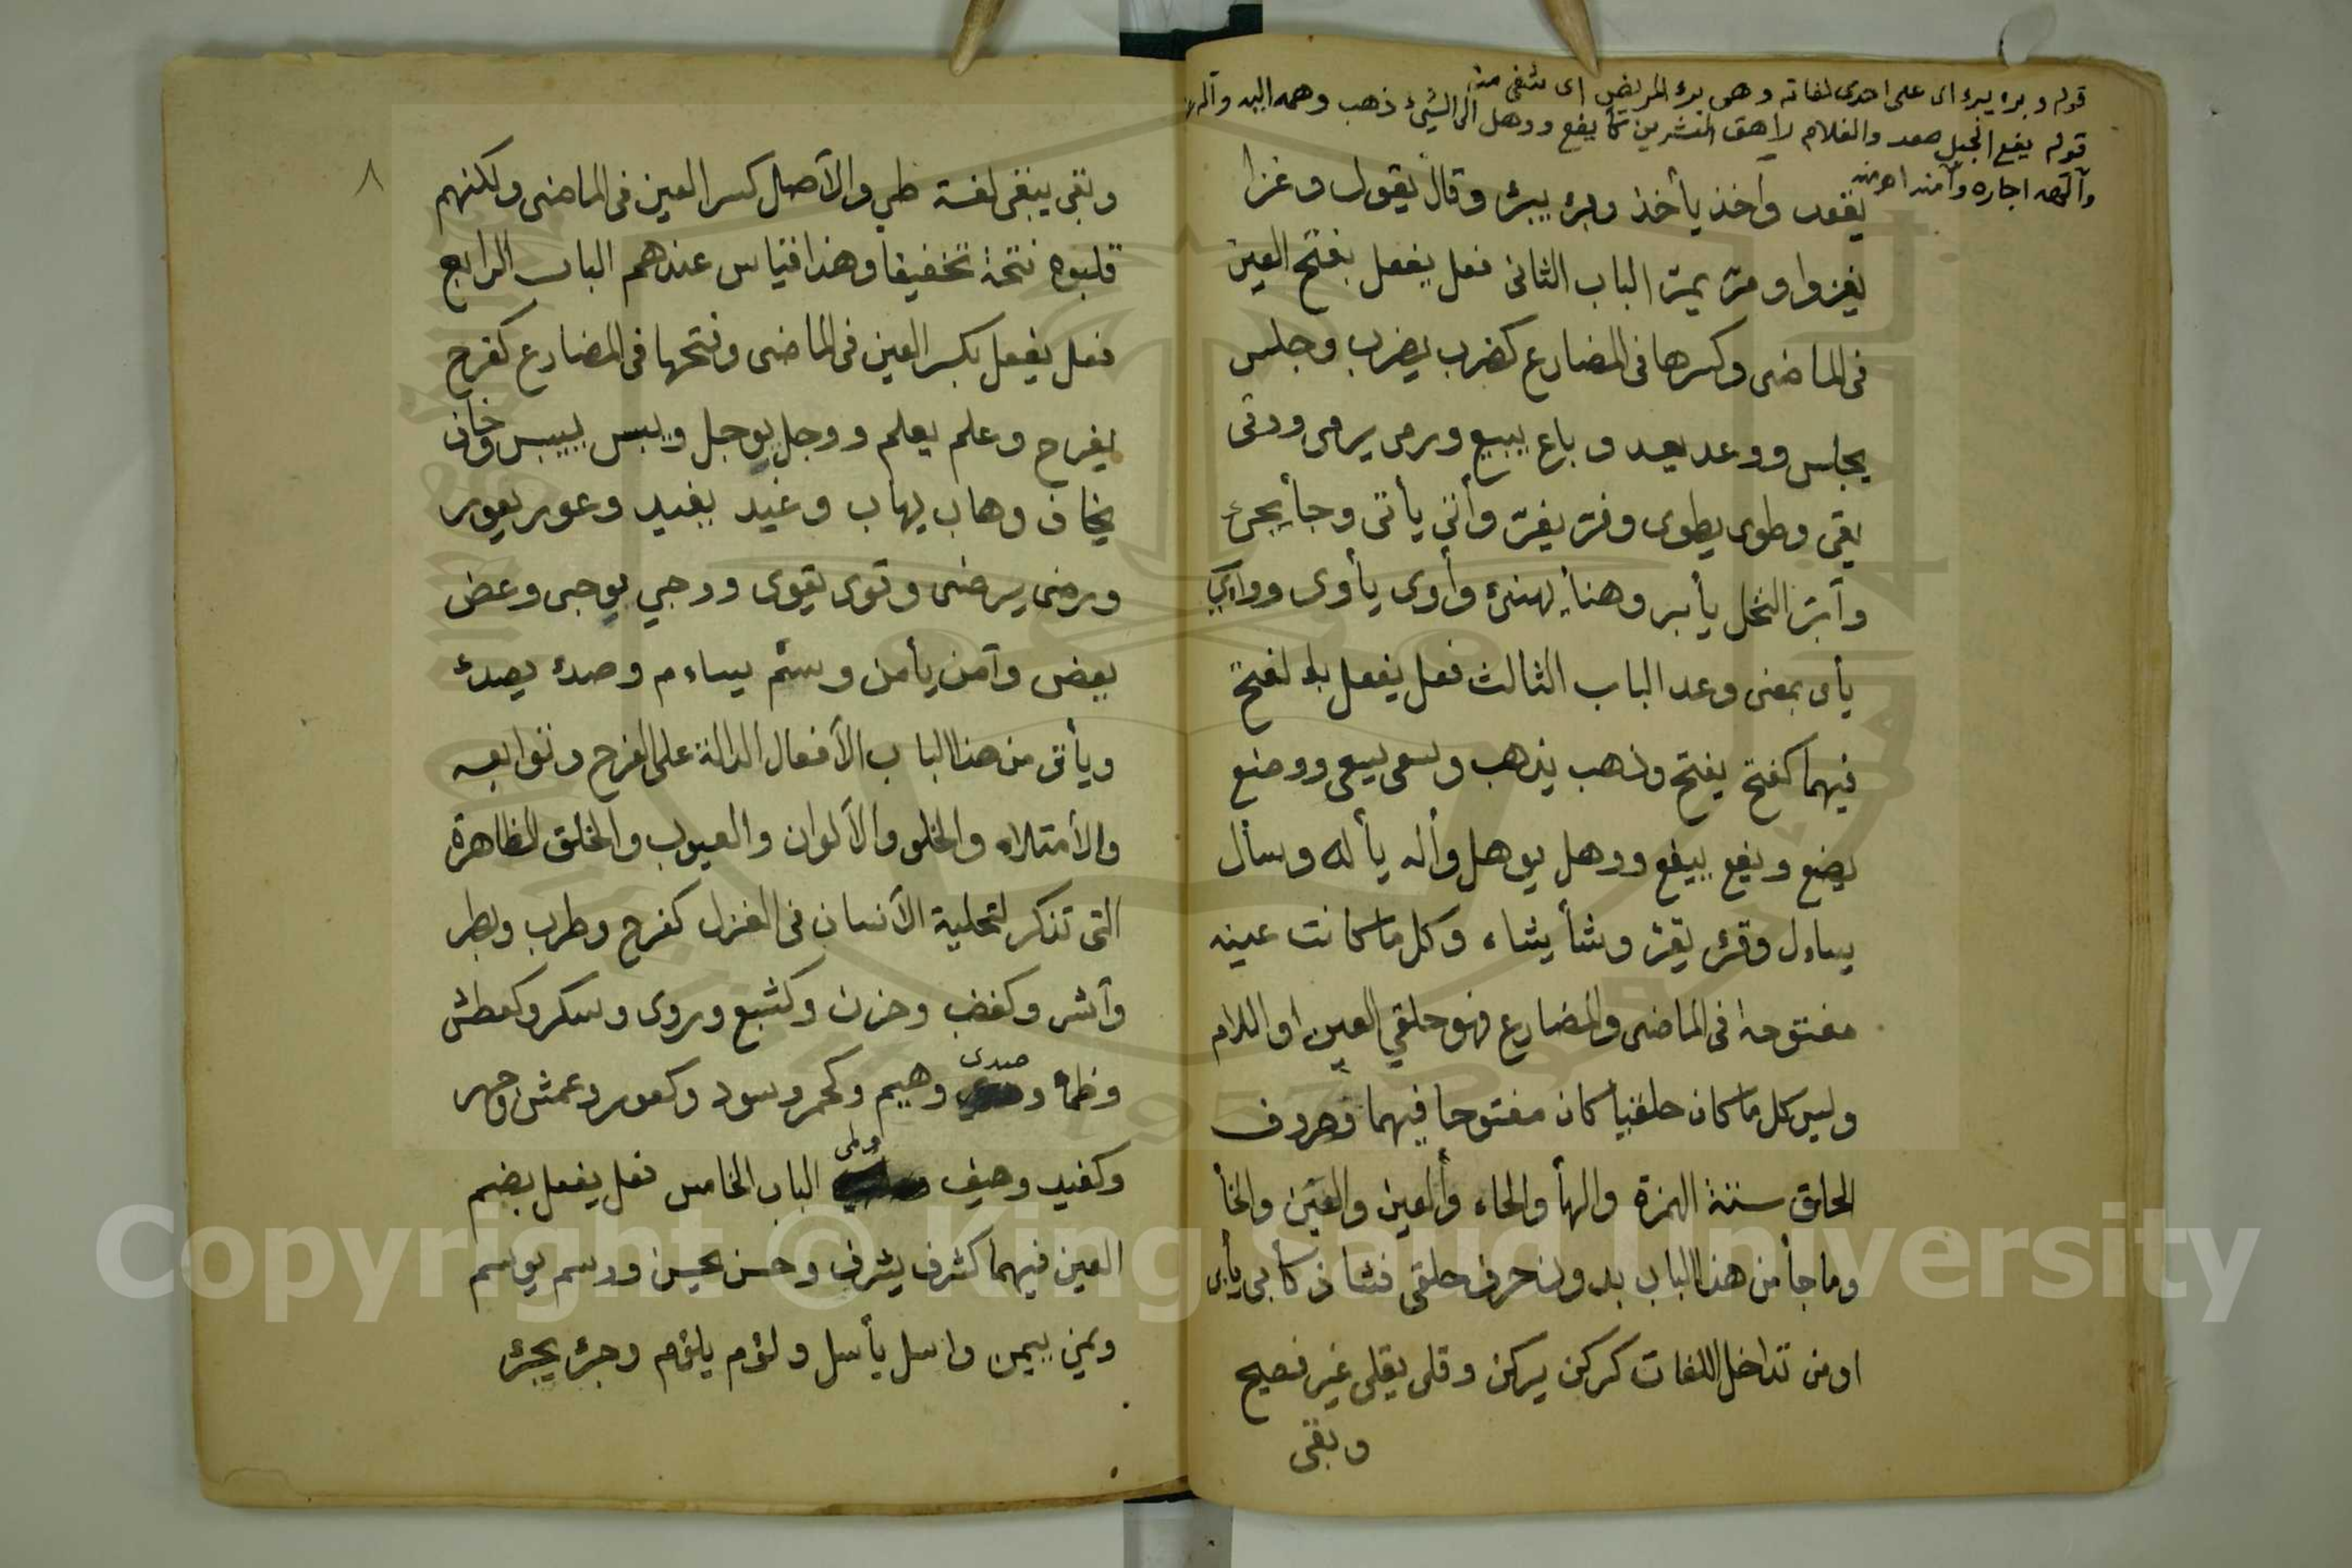 قوله وبرء يبرء اى على احدى لغاته وهى برء المريض اى شفى منه
قوله يفع الجبل صعد والغلام راهق العشرين كأيفع ووهل الى الشيئ ذهب وهمه اليه وأله
وألهه اجاره وآمنه اهـ منه
يقعد وأخذ يأخذ وبرؤ يبرؤ وقال يقول وغزا
يغزوا ومرّ يمرّ الباب الثانى فعل يفعل بفتح العين
فى الماضى وكسرها فى المضارع كضرب يضرب وجلس
يجلس ووعد يعد وباع يبيع ورمى يرمى ووقى
يقى وطوى يطوى وفرّ يفرّ وأتى يأتى وجأ يجئ
وأبرَ النخل يأبر وهنأ يهنئ وأوى يأوى ووأي
يأى بمعنى وعد الباب الثالث فعل يفعل بالفتح
فيهما كفتح يفتح وذهب يذهب وسعى يسعى ووضع
يضع ويفع ييفع ووهل يوهل وأله يأله وسأل
يساءل وقرؤ يقرؤ ونشأ ينشاء وكل ما كانت عينه
مفتوحه فى الماضى والمضارع فهو حلقي العين او اللام
وليس كل ما كان حلقيا كان مفتوحا فيهما وحروف
الحلق ستة الهمزة والهأ والحاء والعين والغين والخأ
وما جأ من هذا الباب بدون حرف حلقى فشاذ كأبى يأبى
او من تداخل اللغات كركن يركن وقلى يقلى غير فصيح
وبقى
٨
وبقى يبقى لغة طي والأصل كسر العين فى الماضى ولكنهم
قلبوه فتحة تخفيفا وهذا قياس عندهم الباب الرابع
فعل يفعل بكسر العين فى الماضى وفتحها فى المضارع كفرح
يفرح وعلم يعلم ووجل يوجل ويبس ييبس وخاف
يخاف وهاب يهاب وغيد يغيد وعور يعور
ورضى يرضى وقوى يقوى ووجي يوجى وعض
يعض وأمن يأمن وسئم يساءم وصدئ يصدئ
ويأتى من هذا الباب الأفعال الدالة على الفرح وتوابعه
والأمتلاء والخلو والألوان والعيوب والخلق الظاهرة
التى تذكر لتحلية الأنسان فى الغزل كفرح وطرب وبطر
وأشر وكغضب وحزن وكشبع وروى وسكر وكعطش
وظماء وصدى وهيم وكحمر وسود وكعور وعمش وجهر
وكغيد وهيف ولمى الباب الخامس فعل يفعل بضم
العين فيهما كشرف يشرف وحسن يحسن ووسم يوسم
ويمن ييمن واسل يأسل ولؤم يلؤم وجرؤ يجرؤ
Copyright © King Saud University